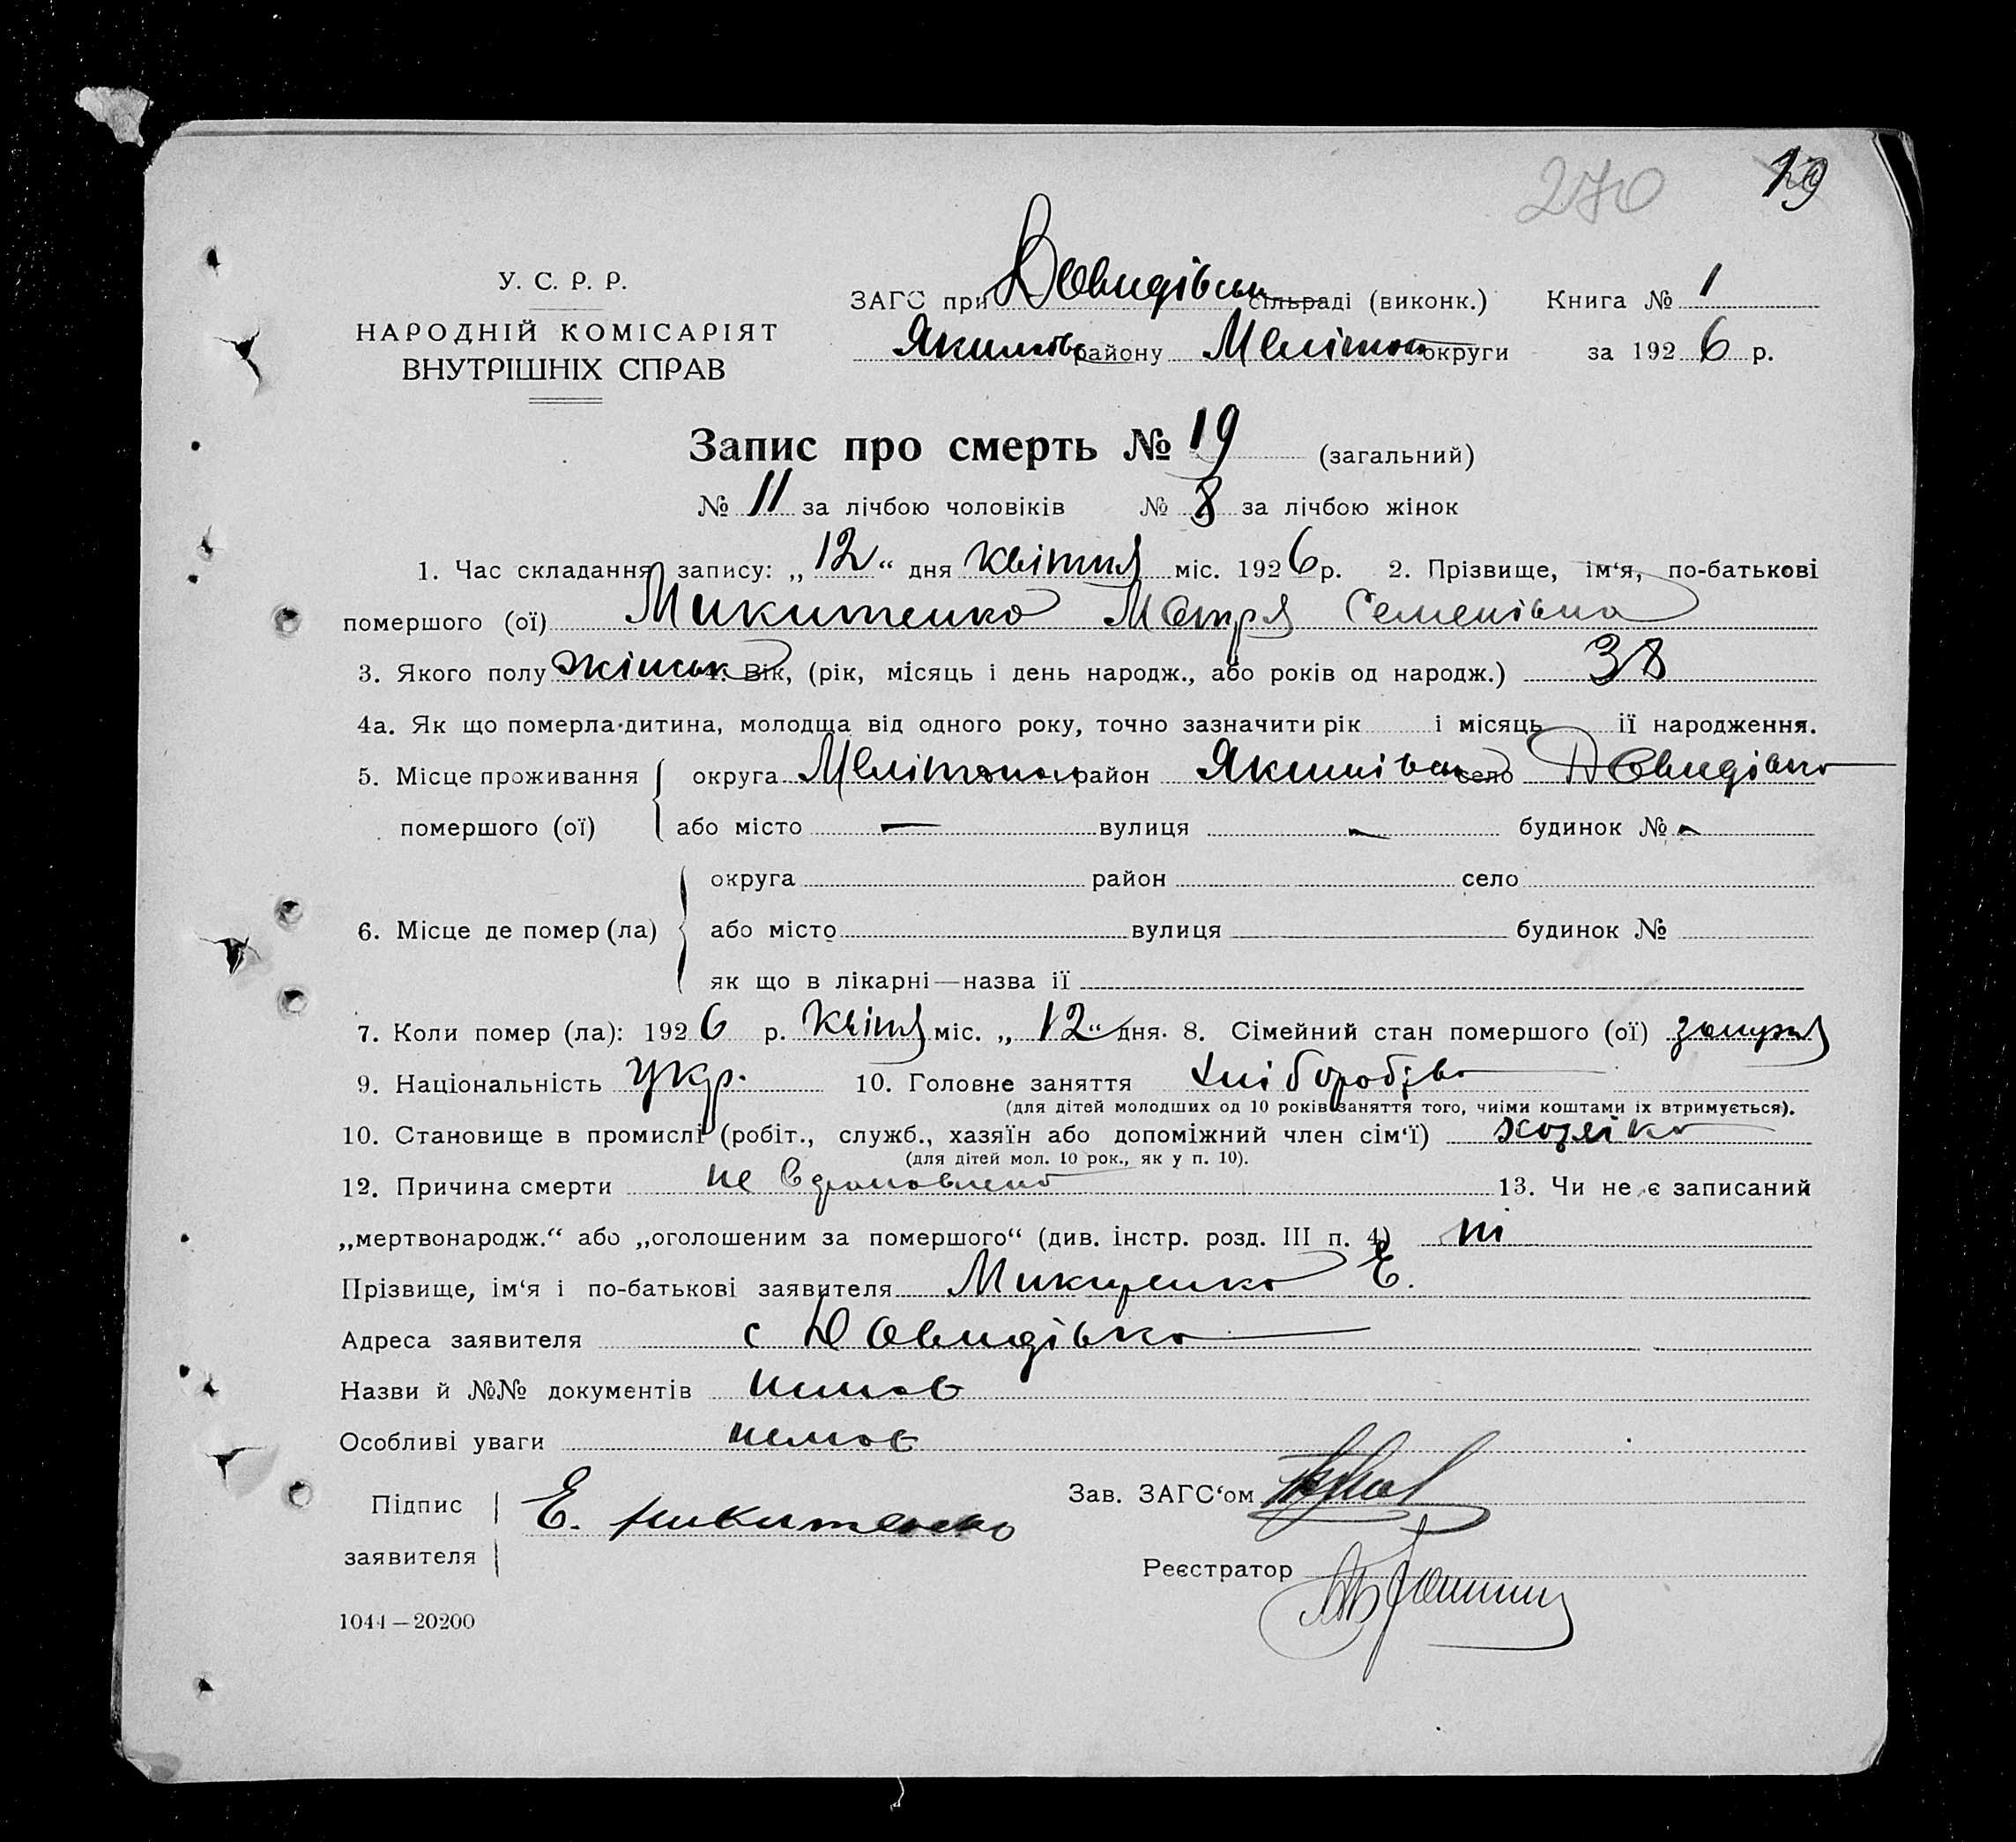 270 19
У. С. Р. Р.
НАРОДНІЙ КОМІСАРІЯТ
ВНУТРІШНІХ СПРАВ
ЗАГС при Давидівськ сільраді (виконк.) Книга № 1
Якимів району Меліток округи за 1926 р.
Запис про смерть № 19 (загальний)
№ 11 за лічбою чоловіків № 8 за лічбою жінок
1. Час складання запису: „12“ дня квітня міс. 1926 р. 2. Прізвище, ім‘я, по-батькові
помершого (ої) Микитенко Мотря Семенівна
3. Якого полу жіноч 4. Вік, (рік, місяць і день народж., або років од народж.) 38
4а. Як що померла дитина, молодща від одного року, точно зазначити рік і місяць ії народження.
5. Місце проживання округа Мелітопол район Якимівськ село Давидівка
помершого (ої) або місто — вулиця — будинок № -
округа район село
6. Місце де помер (ла) або місто вулиця будинок №
як що в лікарні—назва ії
7. Коли помер (ла): 1926 р. Квітня міс. „12“ дня. 8. Сімейний стан помершого (ої) замужня
9. Національність укр. 10. Головне заняття хліборобсво
(для дітей молодших од 10 років заняття того, чиїми коштами їх втримується).
10. Становище в промислі (робіт., служб., хазяїн або допоміжний член сім‘ї) хазяїка
(для дітей мол. 10 рок., як у п. 10).
12. Причина смерти не вдоновлено 13. Чи не є записаний
„мертвонародж.“ або „оголошеним за помершого“ (див. інстр. розд. III п. 4) ні
Прізвище, ім‘я і по-батькові заявителя Микитенко Е.
Адреса заявителя с Давидівка
Назви й №№ документів немає
Особливі уваги немає
Підпис заявителя Е. Микитенко
Зав. ЗАГС‘ом
Реєстратор
1044—20200